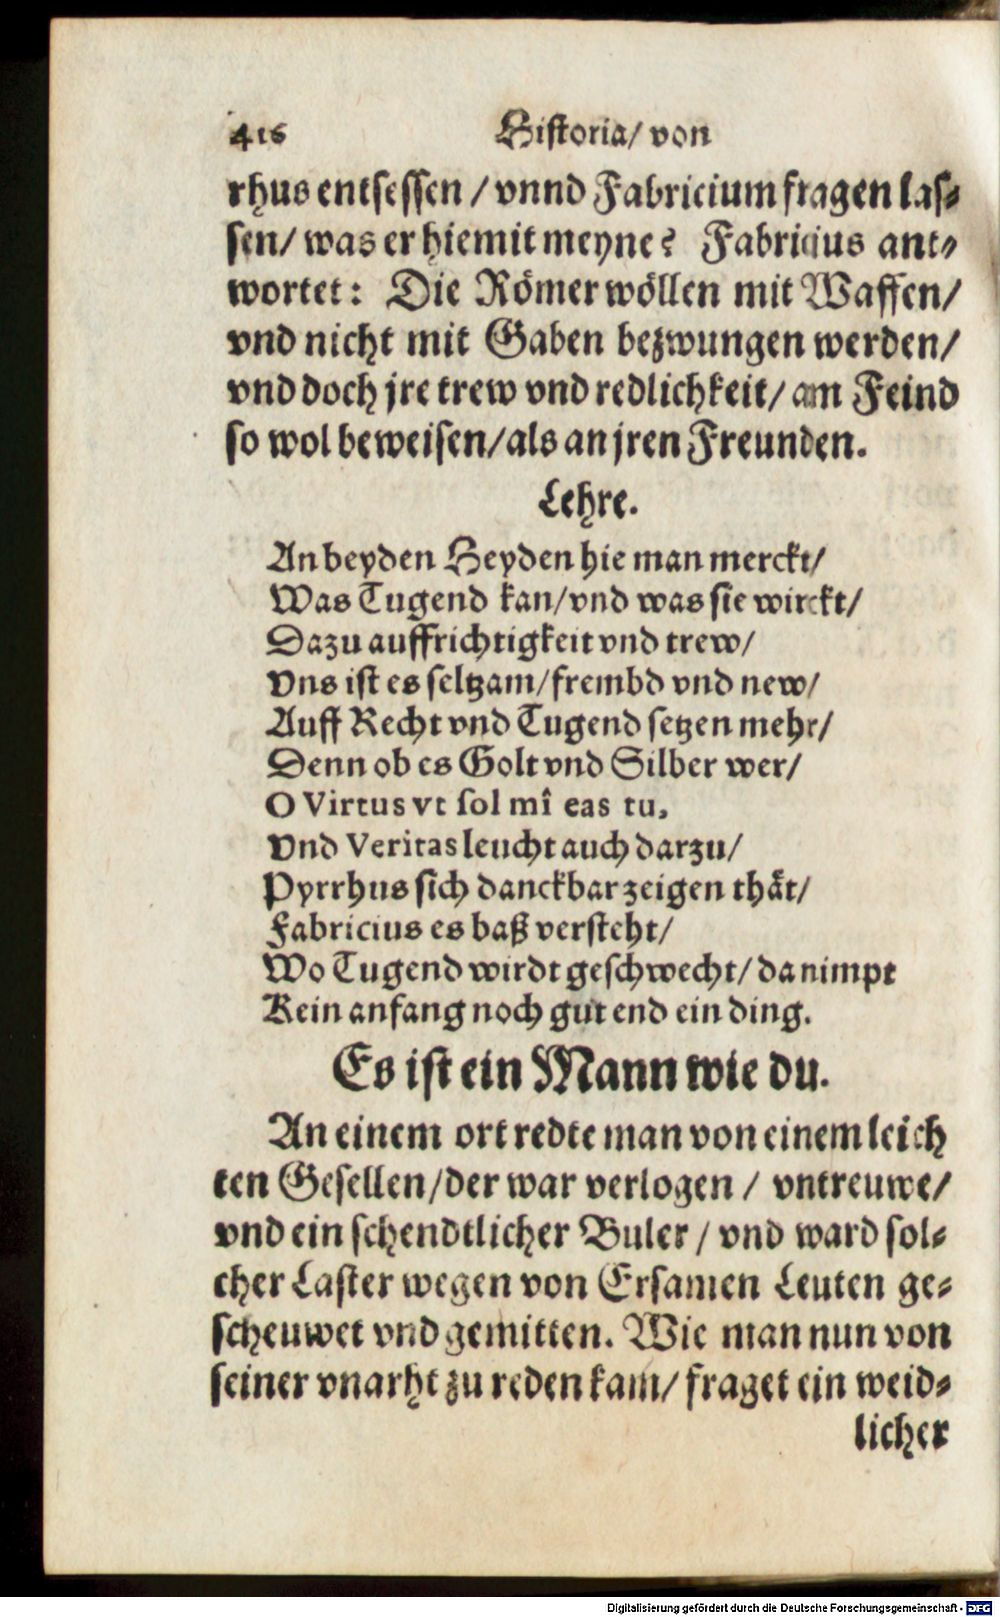 416 Historia/ von
rhus entsessen / vnnd Fabricium fragen las-
sen/ was er hiemit meyne? Fabricius ant-
wortet: Die Römer wöllen mit Waffen/
vnd nicht mit Gaben bezwungen werden/
vnd doch jre trew vnd redlichkeit/ am Feind
so wol beweisen/als an jren Freunden.
Lehre.
An beyden Heyden hie man merckt/
Was Tugend kan/vnd was sie wirckt/
Dazu auffrichtigkeit vnd trew/
Vns ist es seltzam/frembd vnd new/
Auff Recht vnd Tugend setzen mehr/
Denn ob es Golt vnd Silber wer/
O Virtus vt sol mî eas tu,
Vnd Veritas leucht auch darzu/
Pyrrhus sich danckbar zeigen thät/
Fabricius es baß versteht/
Wo Tugend wirdt geschwecht/ da nimpt
Kein anfang noch gut end ein ding.
Es ist ein Mann wie du.
An einem ort redte man von einem leich
ten Gesellen/der war verlogen / vntreuwe/
vnd ein schendtlicher Buler / vnd ward sol-
cher Laster wegen von Ersamen Leuten ge-
scheuwet vnd gemitten. Wie man nun von
seiner vnarht zu reden kam/ fraget ein weid-
licher
Digitalisierung gefördert durch die Deutsche Forschungsgemeinschaft - DFG